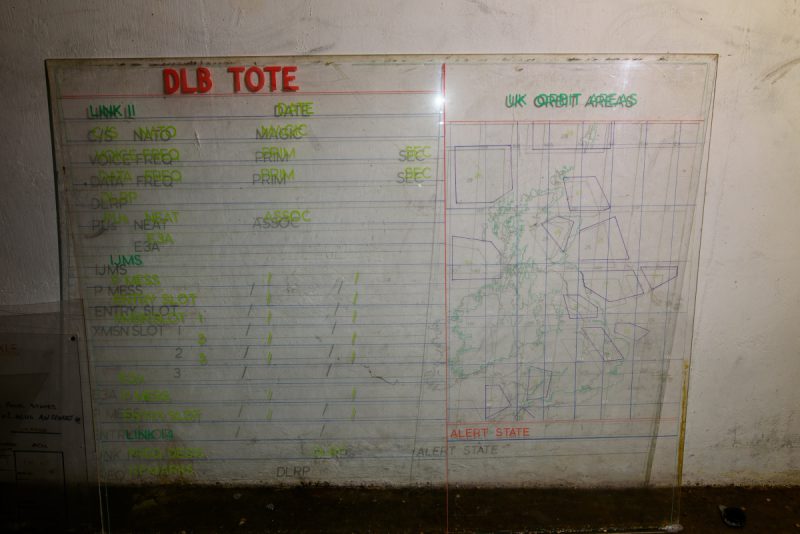 DLB TOTE
LINK 11 DATE
C/S NATO MAGIC
VOICE FREQ PRIM SEC
DATA FREQ PRIM SEC
DLRP
PUs NEAT ASSOC
E3A
IJMS
P MESS
ENTRY SLOT
XMSN SLOT 1
2
3
E3A P MESS
ENTRY SLOT
LINK 14
DLRP
REMARKS
UK ORBIT AREAS
ALERT STATE